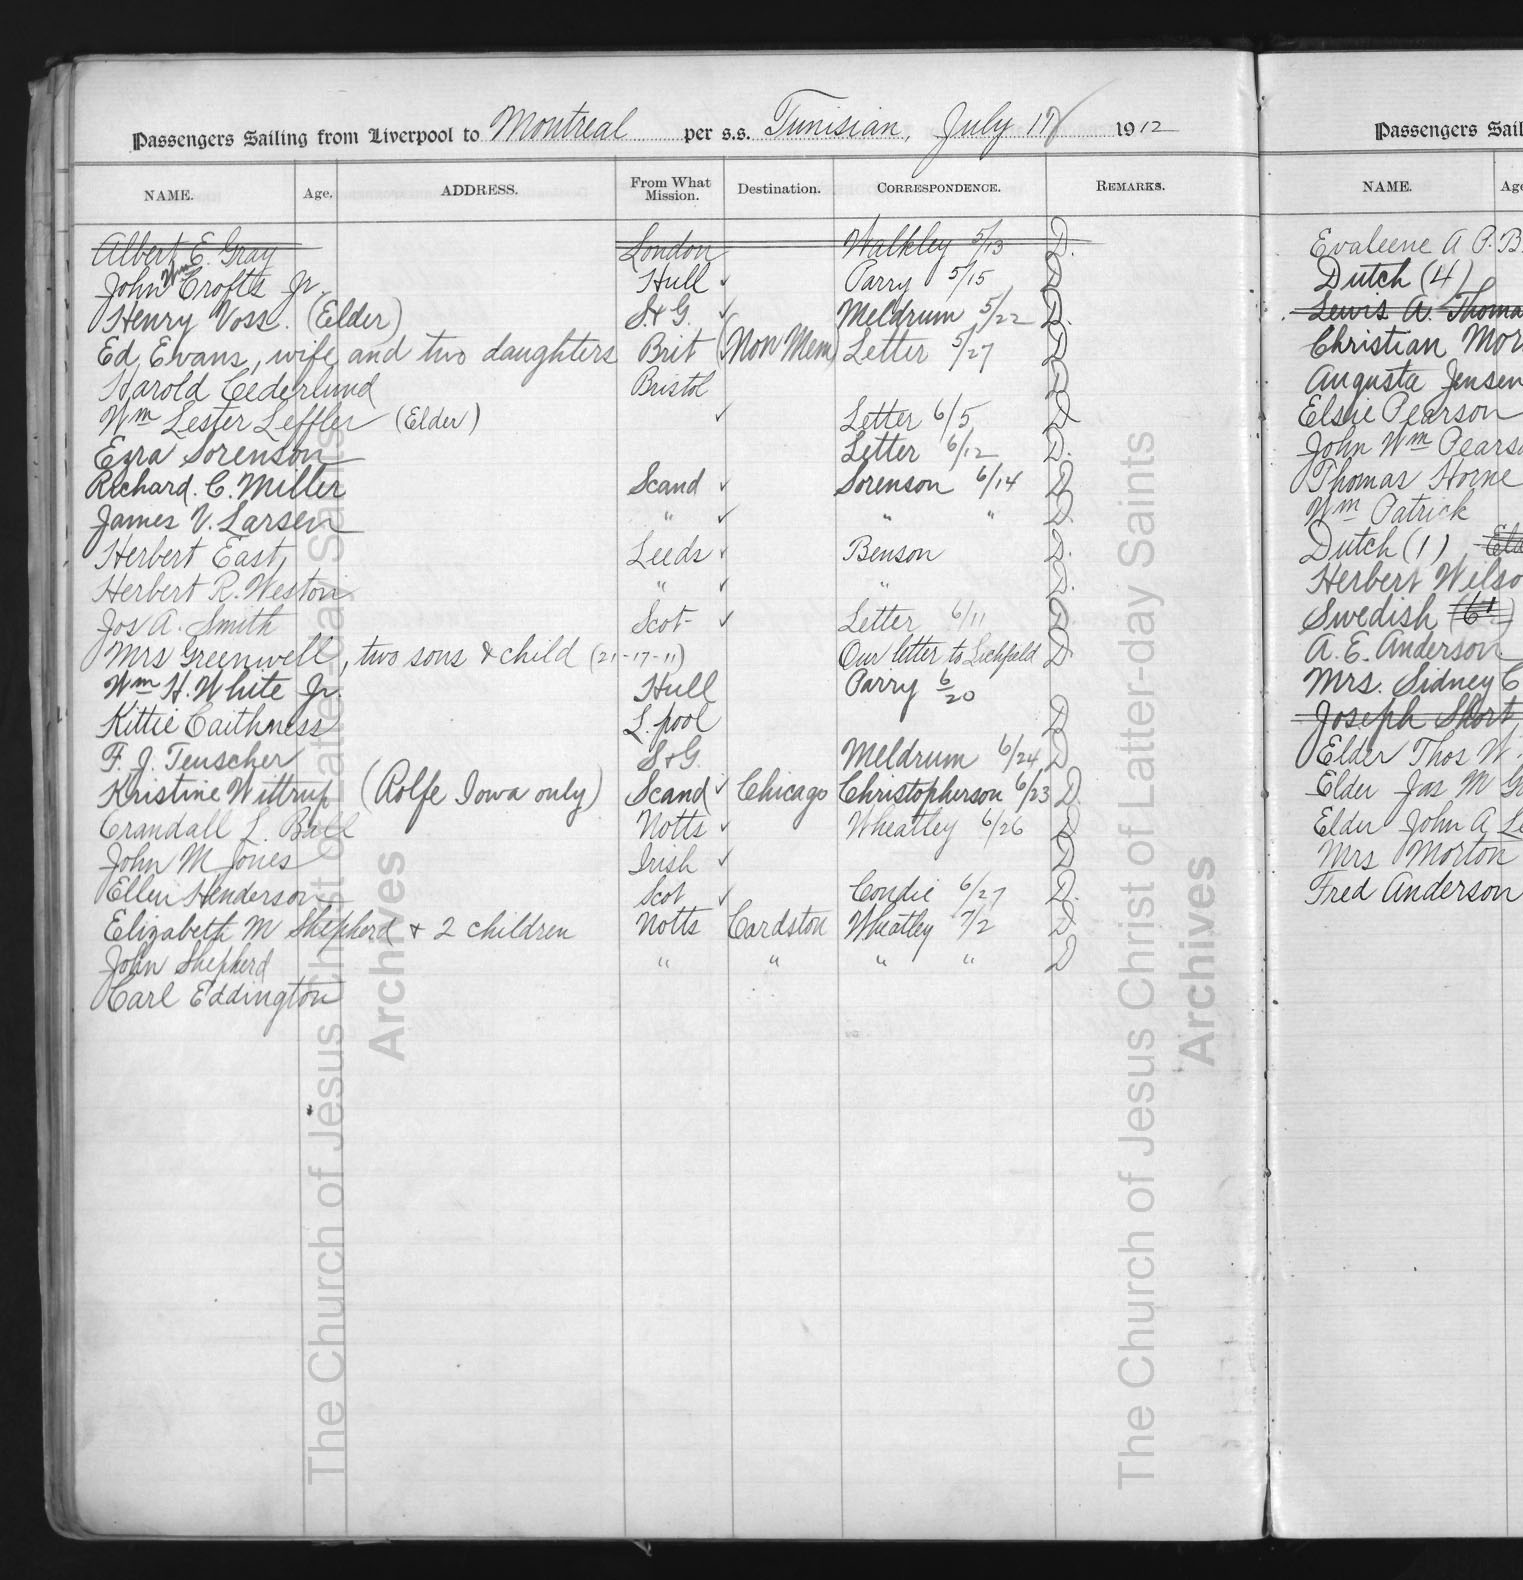 Passengers Sailing from Liverpool to Montreal per s.s. Tunisian, July 17 1912
NAME. Age. ADDRESS. From What Mission. Destination. CORRESPONDENCE. REMARKS.
Albert E. Gray London Walkley 5/13 D.
John Wm Crofts Jr. Hull ✓ Parry 5/15 D
Henry Voss. (Elder) S+G. ✓ Meldrum 5/22 D.
Ed Evans, wife and two daughters Brit (Non Mem) Letter 5/27 D
Harold Cederlund Bristol D
Wm Lester Leffler (Elder) ✓ Letter 6/5 D
Ezra Sorenson Letter 6/12 D.
Richard. C. Miller Scand ✓ Sorenson 6/14 D
James V. Larsen " ✓ " " D.
Herbert East, Leeds ✓ Benson D.
Herbert R. Weston " ✓ " D.
Jos A. Smith Scot- ✓ Letter 6/11 D
Mrs Greenwell, two sons & child (21-17-11) Our letter to Lichfield D
Wm H. White Jr. Hull Parry 6/20
Kittie Caithness L.pool D
F. J. Teuscher S+G. Meldrum 6/24 D
Kristine Wittrup (Rolfe Iowa only) Scand ✓ Chicago Christopherson 6/23 D.
Crandall L. Ball Notts ✓ Wheatley 6/26 D
John M Jones Irish ✓ D
Ellen Henderson Scot ✓ Condie 6/27 D.
Elizabeth M Shepherd + 2 children Notts Cardston Wheatley 7/2 D
John Shepherd " " " " D
Carl Eddington
Passengers Sail
NAME. Age
Evaleene A P. B
Dutch (4)
Lewis A. Thoma
Christian Mor
Augusta Jensen
Elsie Pearson
John Wm Pears
Thomas Horne
Wm Patrick
Dutch (1) Eld
Herbert Wilso
Swedish (6)
A. E. Anderson
Mrs. Sidney C
Joseph Short
Elder Thos W
Elder Jas M G
Elder John A Le
Mrs Morton
Fred Anderson
The Church of Jesus Christ of Latter-day Saints
Archives
The Church of Jesus Christ of Latter-day Saints
Archives